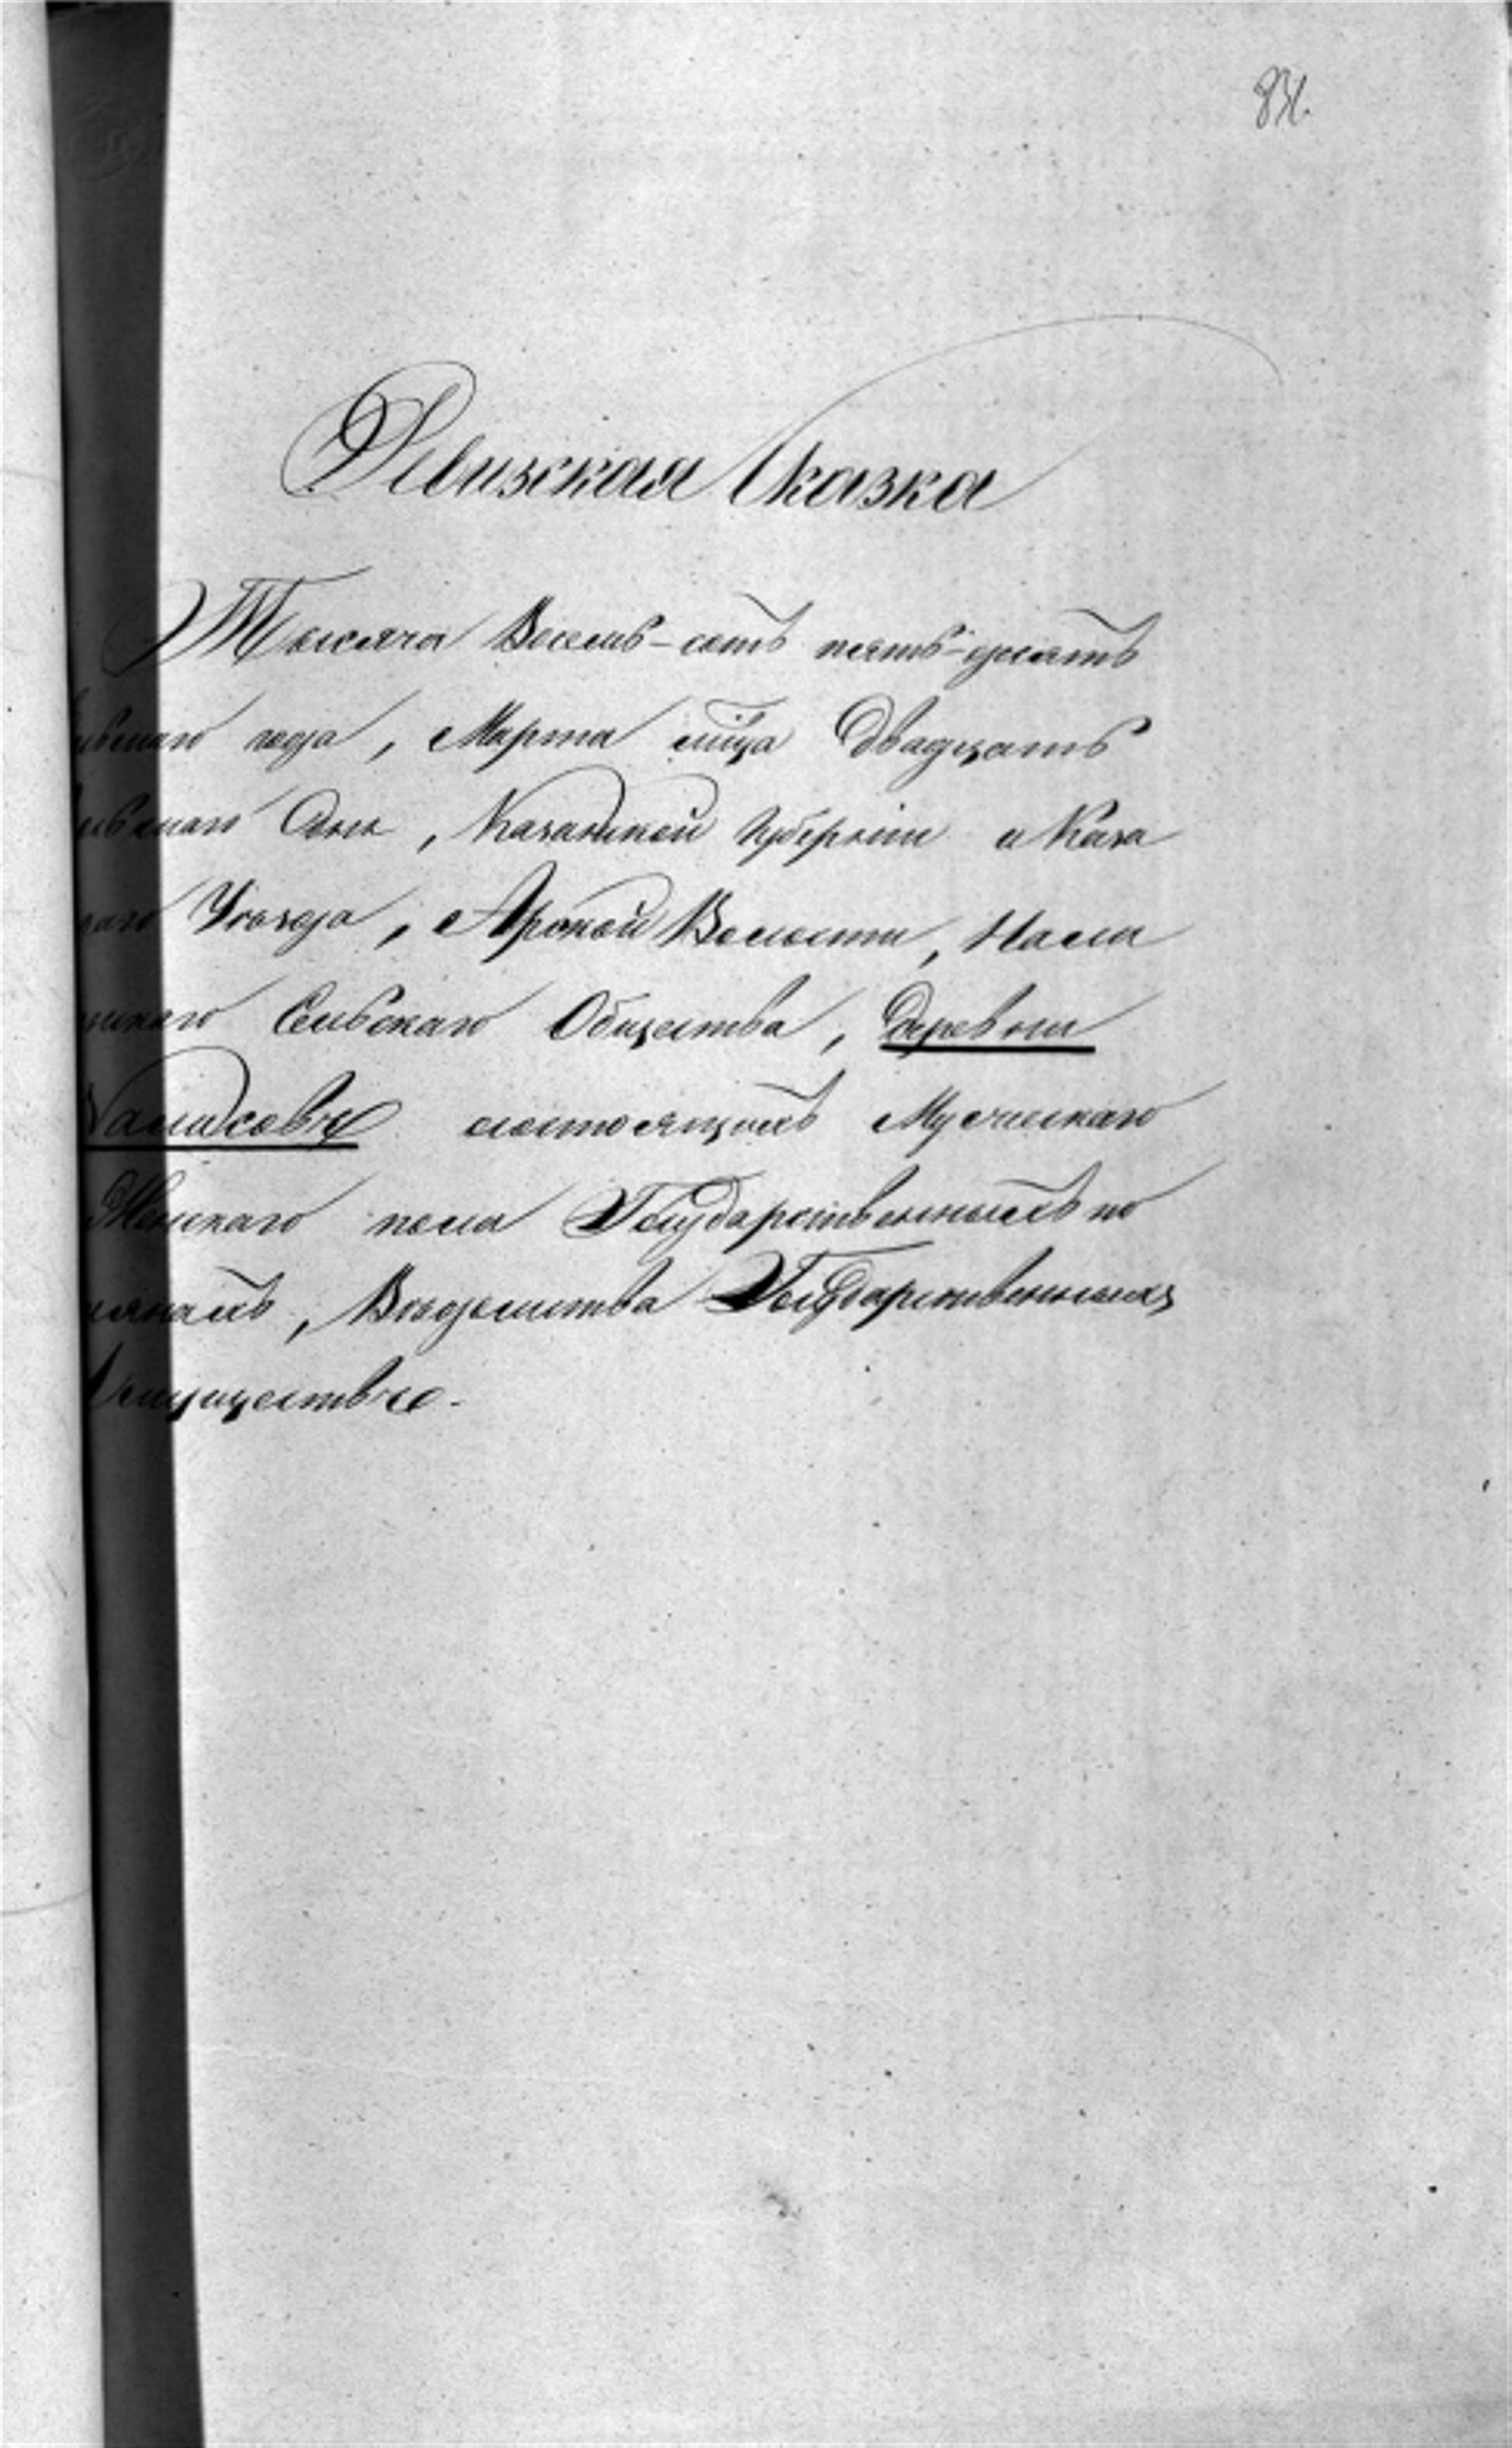 Ревизская Сказка
Тысяча Восемь-сотъ пять-десятъ
года, Марта мца двадцать
дня, Казанской Губерніи и Каза
Уѣзда, Арской Волости,
Сельскаго Общества, деревни
состоящимъ Мужескаго
Женскаго пола Государственнымъ по
Вѣдомства Государственныхъ
Имуществъ.